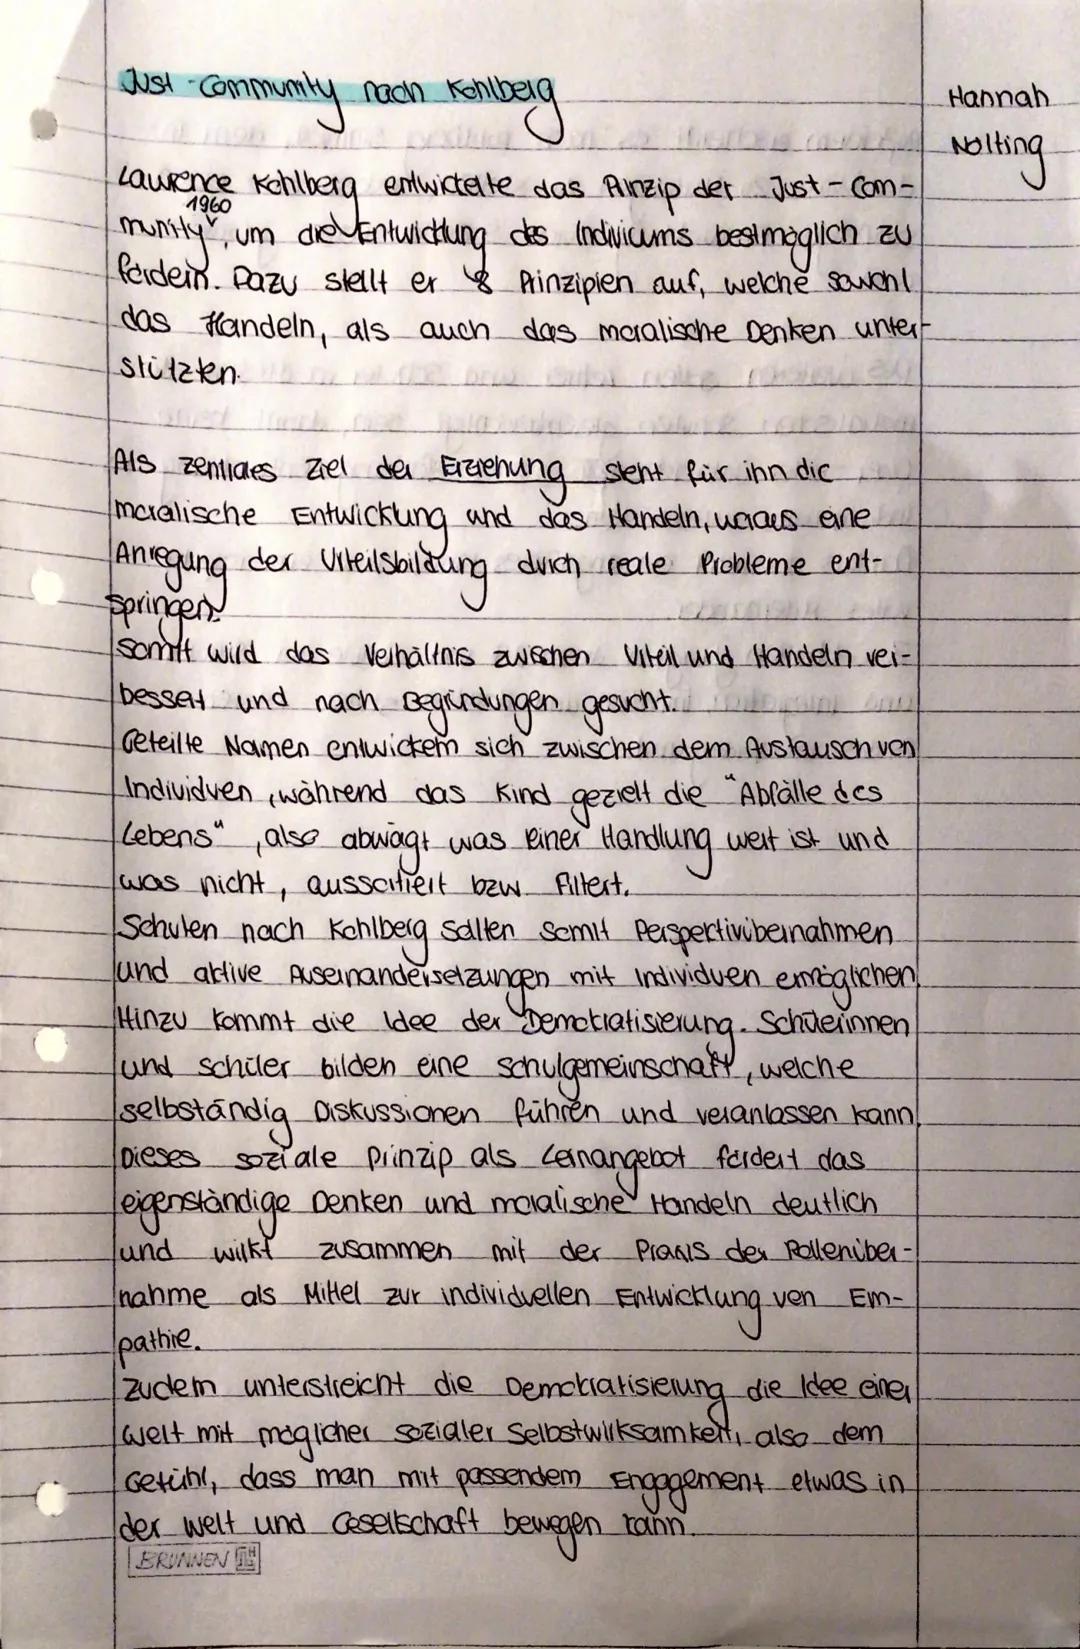 Just-Community nach Kohlberg
Hannah
Nolting
Lawrence Kohlberg entwickelte das Prinzip der Just-Com-
1960
munity, um die Entwicklung des Indivicums bestmöglich zu
fördern. Dazu stellt er 8 Prinzipien auf, welche sowohl
das Handeln, als auch das moralische Denken unter-
stützten.
Als zentrales Ziel der Erziehung steht für ihn die
moralische Entwicklung und das Handeln, woraus eine
Anregung der Urteilsbildung durch reale Probleme ent-
springen.
Somit wird das Verhältnis zwischen Urteil und Handeln ver-
bessert und nach Begründungen gesucht.
Geteilte Normen entwickeln sich zwischen dem Austausch von
Individuen, während das Kind gezielt die "Abfälle des
Lebens", also abwägt was einer Handlung wert ist und
was nicht, aussortiert bzw. filtert.
Schulen nach Kohlberg sollten somit Perspektivübernahmen
und aktive Auseinandersetzungen mit Individuen ermöglichen.
Hinzu kommt die Idee der Demokratisierung. Schülerinnen
und Schüler bilden eine Schulgemeinschaft, welche
selbständig Diskussionen führen und veranlassen kann.
Dieses soziale Prinzip als Lernangebot fördert das
eigenständige Denken und moralische Handeln deutlich
und wirkt zusammen mit der Praxis der Rollenüber-
nahme als Mittel zur individuellen Entwicklung von Em-
pathie.
Zudem unterstreicht die Demokratisierung die Idee einer
Welt mit möglicher sozialer Selbstwirksamkeit, also dem
Gefühl, dass man mit passendem Engagement etwas in
der Welt und Gesellschaft bewegen kann.
BRUNNEN